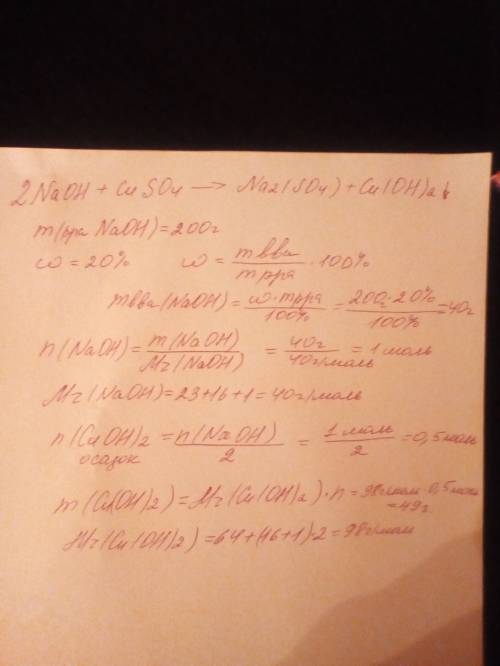 2NaOH + CuSO4 → Na2(SO4) + Cu(OH)2↓
m(р-ра NaOH) = 200г
ω = 20% ω = m вва / m рра · 100%
m вва (NaOH) = ω · m рра / 100% = 200г · 20% / 100% = 40г
n(NaOH) = m(NaOH) / Mr(NaOH) = 40г / 40г/моль = 1 моль
Mr(NaOH) = 23+16+1 = 40г/моль
n(CuOH)2 = n(NaOH) / 2 = 1 моль / 2 = 0,5 моль
осадок
m(Cu(OH)2) = Mr(Cu(OH)2) · n = 98г/моль · 0,5 моль
= 49г
Mr(Cu(OH)2) = 64 + (16+1)·2 = 98г/моль